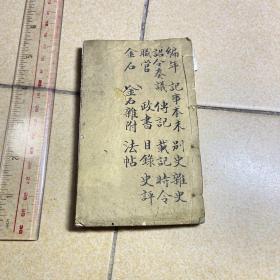 編年 記事本末 別史 雜史
詔令奏議 傳記 載記 時令
職官 政書 目錄 史評
金石 金石雜附 法帖